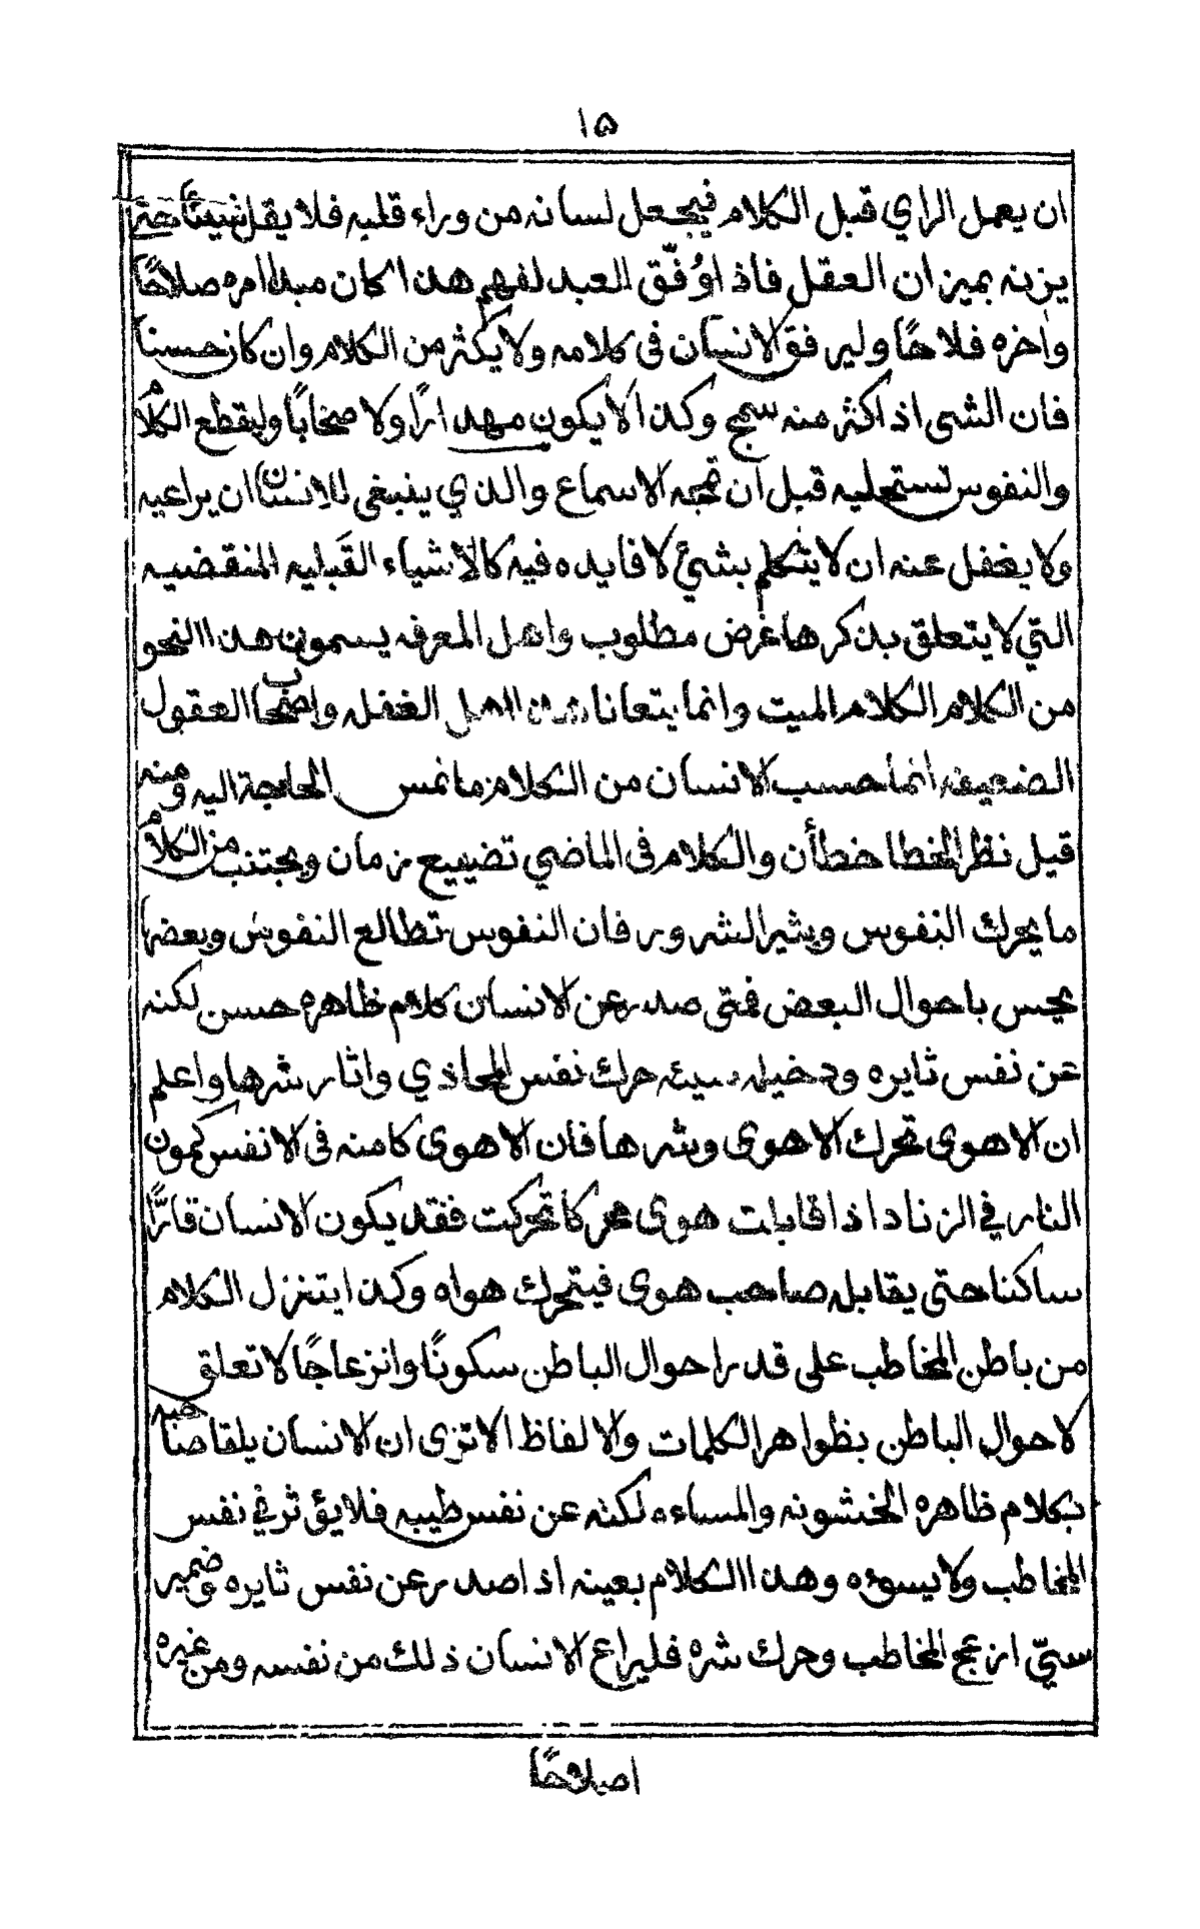 ١٥
ان يعمل الراي قبل الكلام فيجعل لسانه من وراء قلبه فلا يقل شيئًا حتى
يزنه بميزان العقل فاذا وُفّق العبد لفهم هذا كان مبدا امره صلاحًا
واخره فلاحًا وليرفق الانسان في كلامه ولا يكثر من الكلام وان كان حسنا
فان الشى اذا كثر منه سمج وكذا لا يكون مهدارًا ولا صخابًا وليقطع الكلام
والنفوس تستحليه قبل ان تمجه الاسماع والذي ينبغى للانسان ان يراعيه
ولا يغفل عنه ان لا يتكلم بشيئ لا فايده فيه كالاشياء القَبليه المنقضيه
التي لا يتعلق بذكرها غرض مطلوب واهل المعرفه يسمون هذا النحو
من الكلام الكلام الميت وانما يتعانا اهل الغفله واصحاب العقول
الضعيفه انما حسب الانسان من الكلام ما تمس الحاجة اليه ومنه
قيل نظر الخطا خطأن والكلام فى الماضي تضييع زمان ويجتنب من الكلام
ما يحرك النفوس ويثير الشرور فان النفوس تطالع النفوس وبعضها
يحس باحوال البعض فمتى صدر عن الانسان كلام ظاهره حسن لكنه
عن نفس ثايره ودخيله سيئه حرك نفس المحاذي واثار شرها واعلم
ان الاهوى تحرك الاهوى وشرها فان الاهوى كامنه فى الانفس كمون
النار في الزناد اذا قابلت هوى محركا تحركت فقد يكون الانسان قارًّا
ساكنا حتى يقابل صاحب هوى فيتحرك هواه وكذا يتنزل الكلام
من باطن المخاطب على قدر احوال الباطن سكونًا وانزعاجًا لا تعلق
لاحوال الباطن بظواهر الكلمات والالفاظ الا ترى ان الانسان يلقا صاحبه
بكلام ظاهره الخشونه والمساءه لكنه عن نفس طيبه فلا يؤثر في نفس
المخاطب ولا يسوءه وهذا الكلام بعينه اذا صدر عن نفس ثايره وضمير
سيّي ازعج المخاطب وحرك شره فليراع الانسان ذلك من نفسه ومن غيره
اصلاحًا